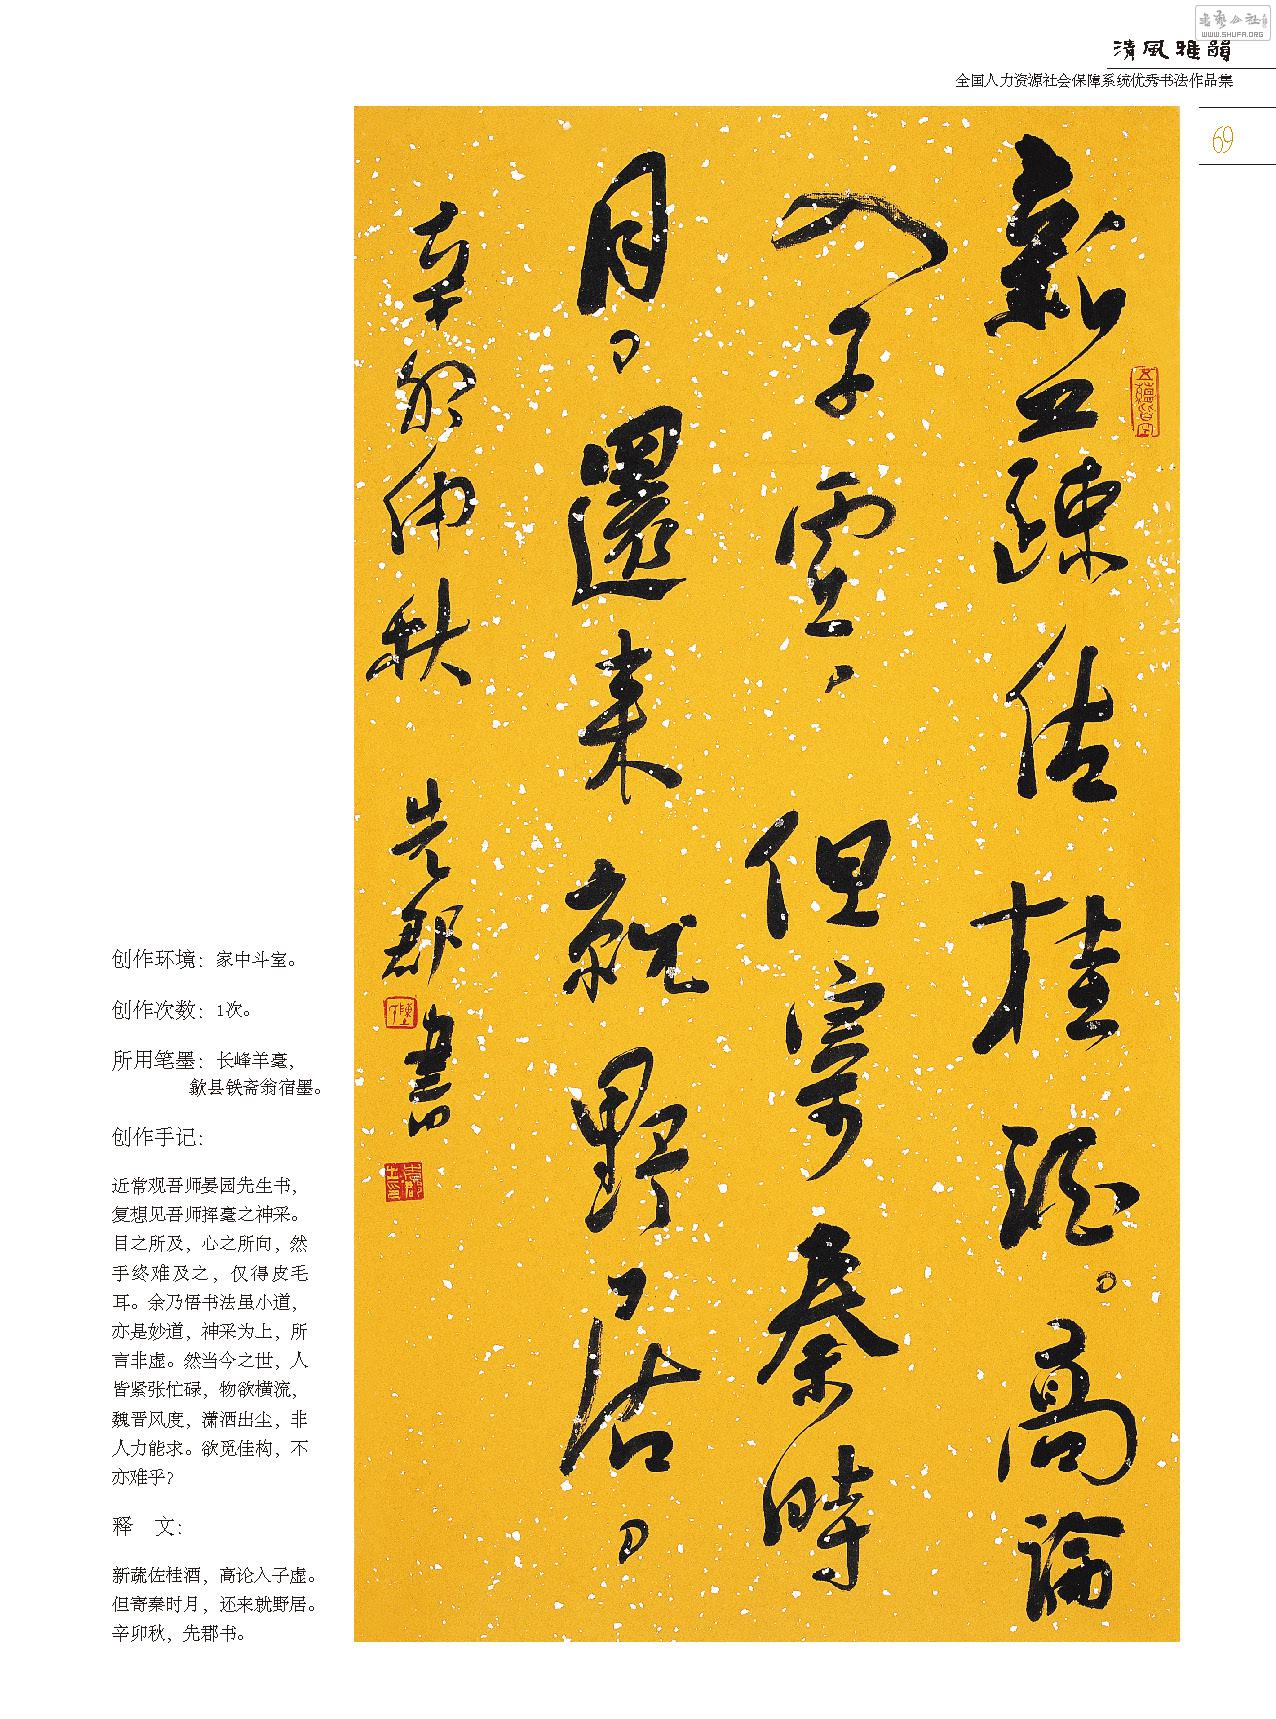 书艺公社
WWW.SHUFA.ORG
清風雅韻
全国人力资源社会保障系统优秀书法作品集
69
新蔬佐桂酒。高論
入子虛、但寄秦時
月、還来就野居、
辛卯仲秋 先郡書
五蘊皆空
创作环境：家中斗室。
创作次数：1次。
所用笔墨：长峰羊毫，
歙县铁斋翁宿墨。
创作手记：
近常观吾师晏园先生书，
复想见吾师挥毫之神采。
目之所及，心之所向，然
手终难及之，仅得皮毛
耳。余乃悟书法虽小道，
亦是妙道，神采为上，所
言非虚。然当今之世，人
皆紧张忙碌，物欲横流，
魏晋风度，潇洒出尘，非
人力能求。欲觅佳构，不
亦难乎？
释 文：
新蔬佐桂酒，高论入子虚。
但寄秦时月，还来就野居。
辛卯秋，先郡书。